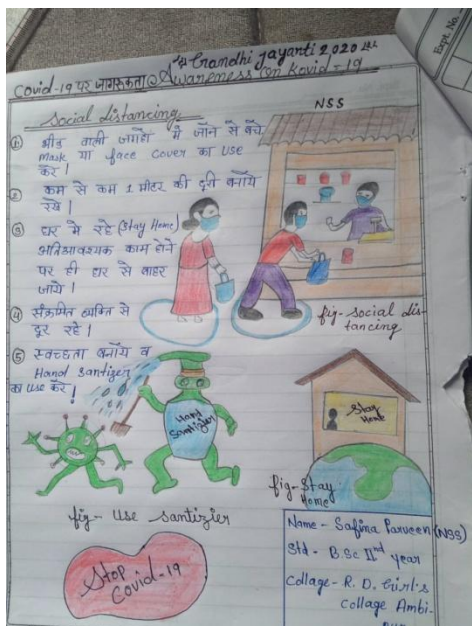 Gandhi Jayanti 2020
Covid-19 पर जागरूकता @ Awareness on Kovid-19
Social distancing
NSS
① भीड वाली जगहों में जाने से बचे
mask या face cover का use
करे।
② कम से कम 1 मीटर की दूरी बनाये
रखे।
③ घर मे रहे (Stay Home)
अतिआवश्यक काम होने
पर ही घर से बाहर
जाये।
④ संक्रमित व्यक्ति से
दूर रहे।
⑤ स्वच्छता बनाँये व
Hand Santizer
का use करे!
fig-social dis-
tancing
Hand
Santizier
Stay
Home
fig-Stay
Home
fig- Use santizier
Stop
Covid-19
Name - Safina Parveen (NSS)
Std - B.Sc IInd year
Collage - R. D. Girl's
Collage Ambi-
Expt. No.